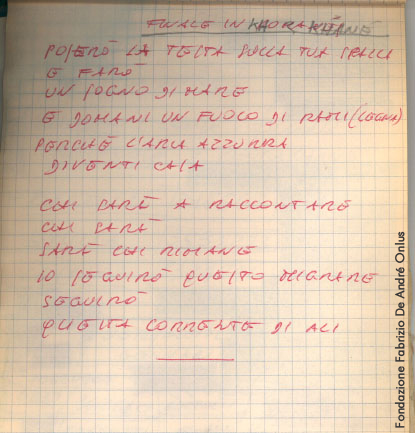 FINALE IN KHORAKHANÉ
POSERÒ LA TESTA SULLA TUA SPALLA
E FARÒ
UN SOGNO DI MARE
E DOMANI UN FUOCO DI RAMI (LEGNA)
PERCHÉ L'ARIA AZZURRA
DIVENTI CASA
CHI SARÀ A RACCONTARE
CHI SARÀ
SARÀ CHI RIMANE
IO SEGUIRÒ QUESTO MIGRARE
SEGUIRÒ
QUESTA CORRENTE DI ALI
Fondazione Fabrizio De André Onlus